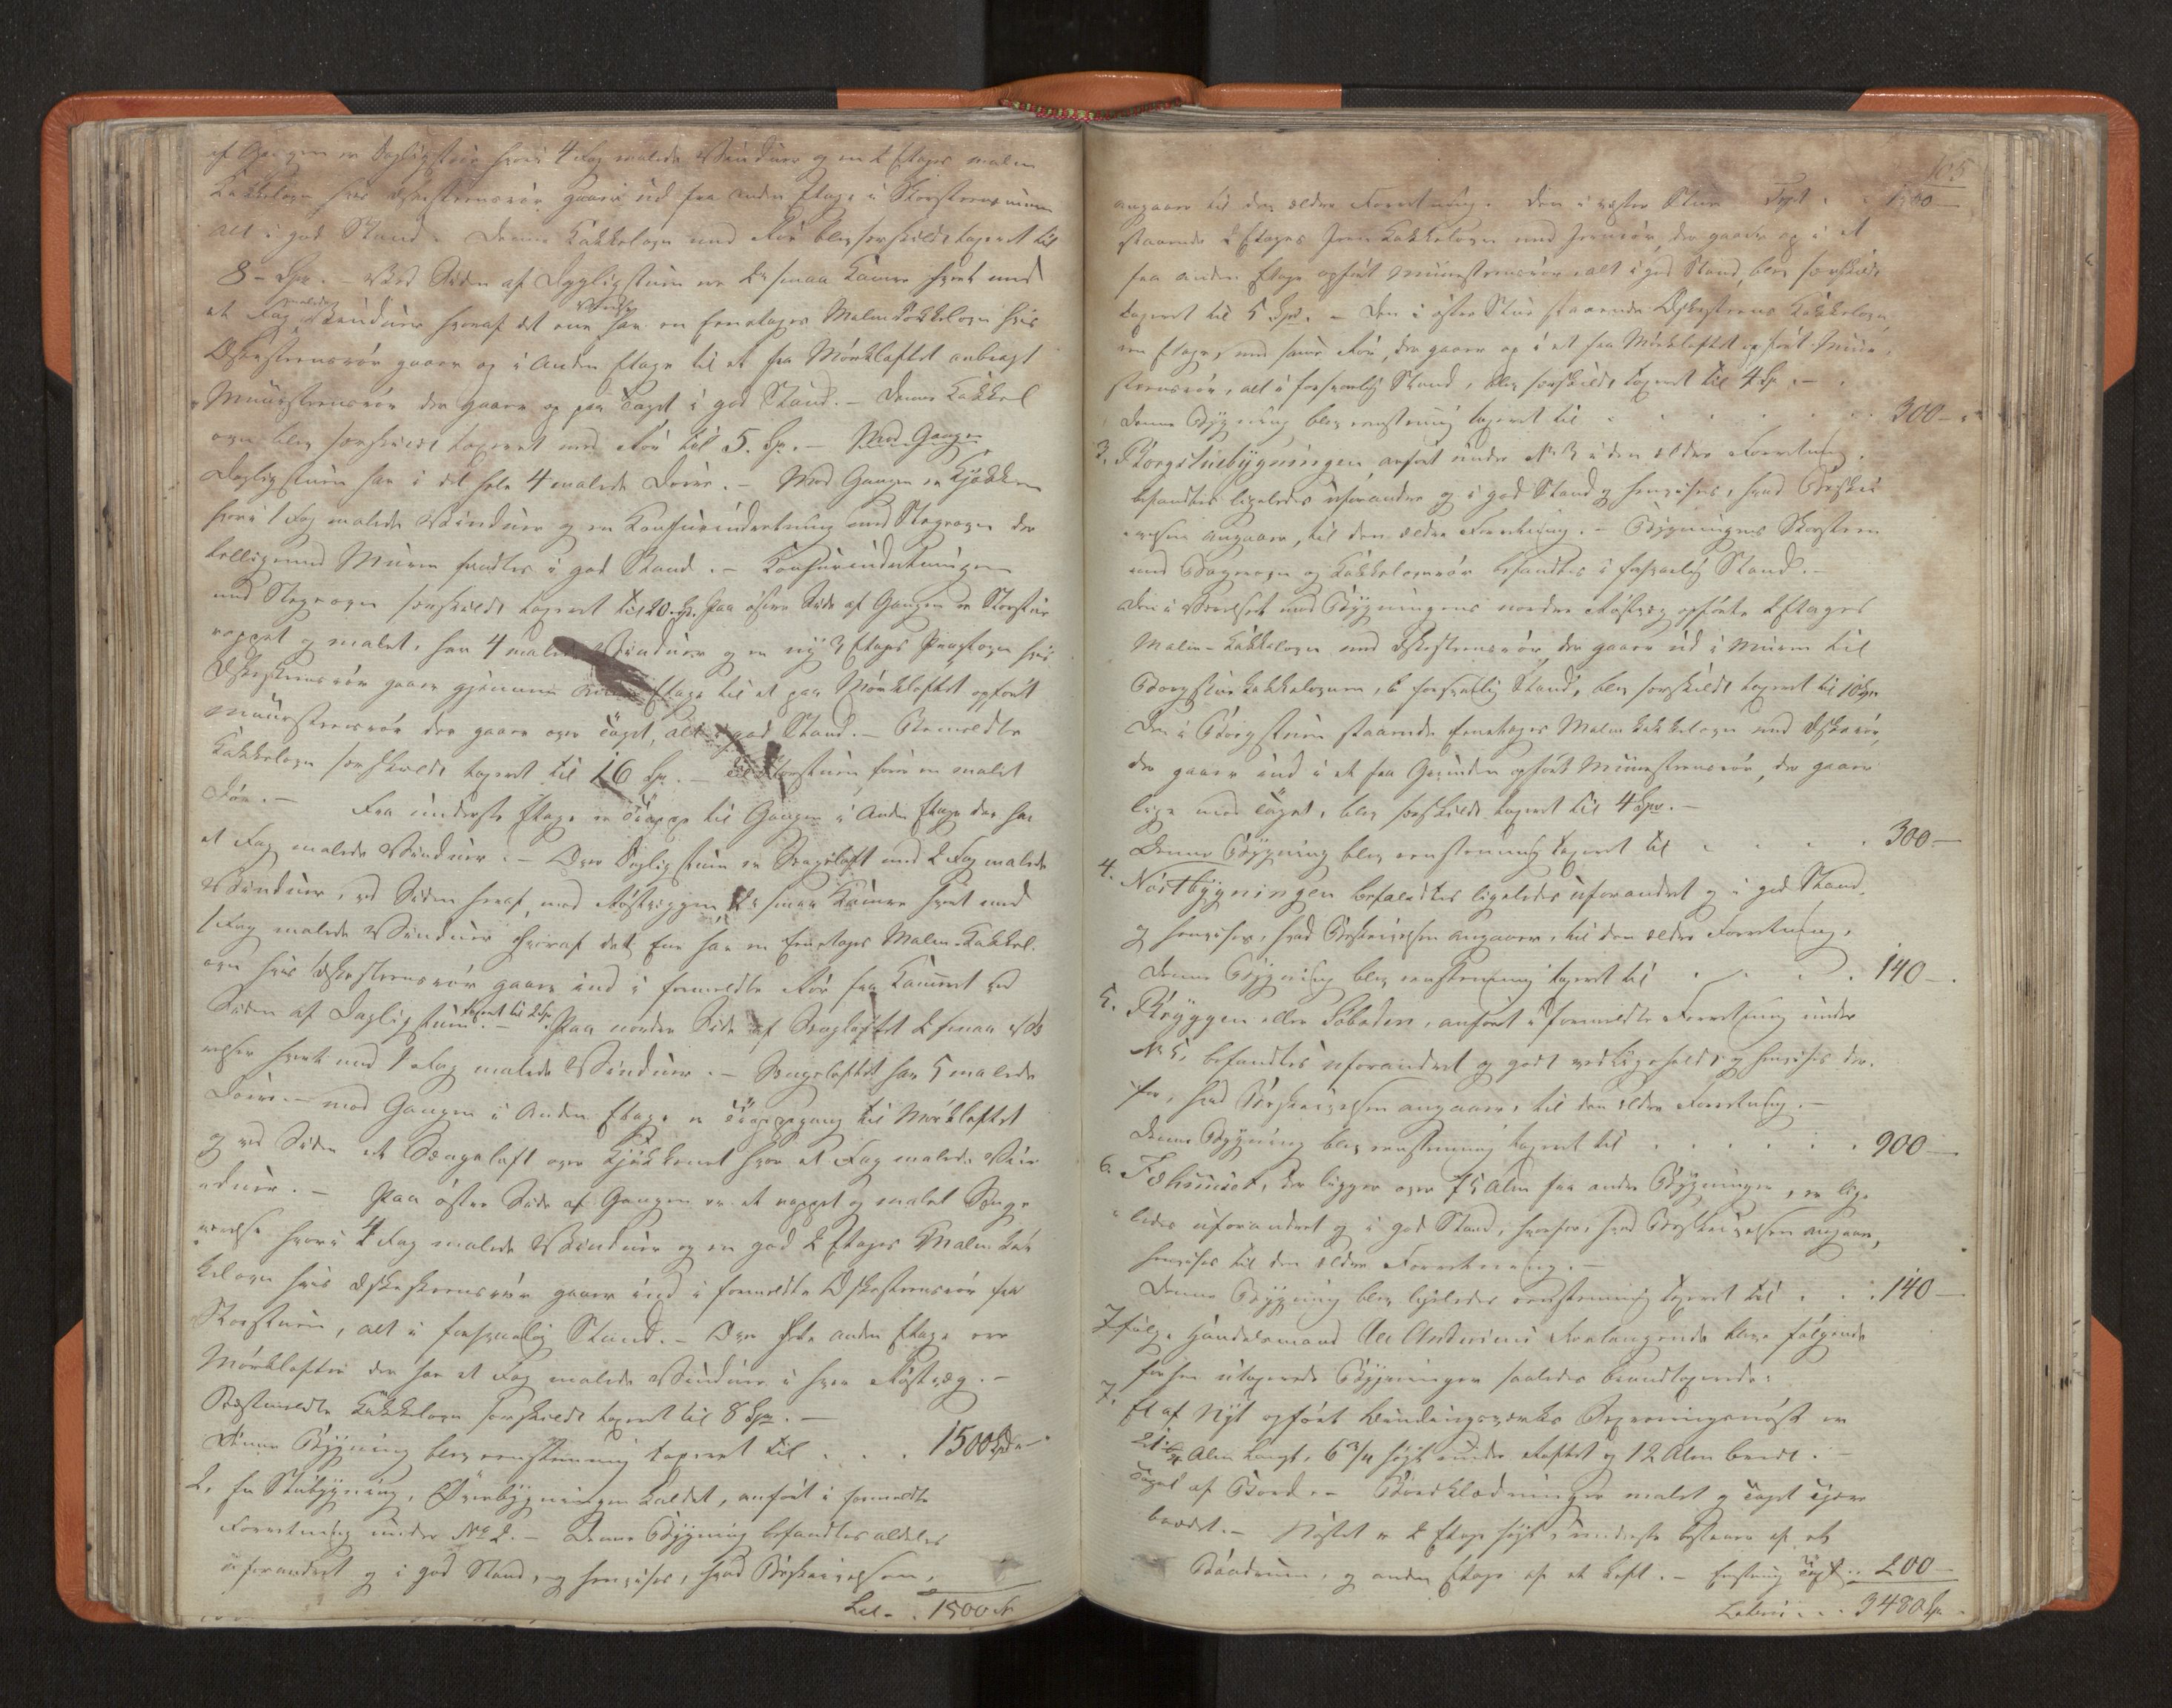 af Gangen er Dagligstue hvori 4 Fag malede Vinduer og en 2 Etages malm
Kakkelovn hvis Askesteensrør gaaer ud fra anden Etage i Skorsteensmuren
alt i god Stand. Denne Kakkelovn med Rør blev særskildt taxeret til
8 – Spd. – Ved Siden af Dagligstuen ere 2 smaa Kamre hvert med
et Fag malede Vinduer hvoraf det ene har en Eenetages Malm Kakkelovn hvis
Askesteensrør gaaer op i Anden Etage til et fra Mørkloftet anbragt
Muursteensrør der gaaer op paa Taget i god Stand. – Denne Kakkel
ovn blev særskildt taxeret med Rør til 5. Sp. – Mod Gangen
Dagligstuen har i det hele 4 malede Dørre. – Mod Gangen er Kjøkken
hvori 1 Fag malede Vinduer og en Komfurindretning med Stegeovn der
tilligemed Muren fandtes i god Stand. – Komfurindretningen
med Stegeovn særskildt taxeret til 20 Sp. Paa østre Side af Gangen er Storstue
rappet og malet, har 4 malede Vinduer og en ny 3 Etages Pragtovn hvis
Askesteensrør gaaer gjennem anden Etage til et paa Mørkloftet opført
Muursteensrør der gaaer over Taget, alt i god Stand. – Bemeldte
Kakkelovn særskildt taxeret til 16 Sp. – Til Storstuen fører en malet
Dør. – Fra underste Etage er Trappe til Gangen i Anden Etage der har
et Fag malede Vinduer. – Over Dagligstuen er Sengeloft med 2 Fag malede
Vinduer, ved Siden heraf, mod Røstveggen, 2 smaa Kamre hvert med
1 Fag malede Vinduer hvoraf det Ene har en Eenetages Malm Kakkel-
ovn hvis Askesteensrør gaaer ind i formeldte Rør fra Kamret ved
Siden af Dagligstuen. – taxeret til 2 Sp. Paa nordre Side af Sengeloftet 2 smaa Væ
relser hvert med 1 Fag malede Vinduer. – Sengeloftet har 5 malede
Dørre. – mod Gangen i Anden Etage er Trappegang til Mørkloftet
og ved Siden et Sængeloft over Kjøkkenet hvor et Fag malede Vin
duer. – Paa østre Side af Gangen er et rappet og malet Senge
værelse hvori 4 Fag malede Vinduer og en god 2 Etages Malm Kak
kelovn hvis Askesteensrør gaaer ind i formeldte Askesteensrør fra
Storstuen, alt i forsvarlig Stand. – Over hele anden Etage ere
Mørklofter der har et Fag malede Vinduer i hver Røstvæg. –
Sidstmeldte Kakkelovn særskildt taxeret til 8 Spd. –
Denne Bygning blev eenstemmig taxeret til . . . 1500 Spd –
2. En Stuebygning, kaldet, anført i formeldte
Forretning under No 2. – Denne Bygning befandtes aldeles
uforandret og i god Stand, og henvises, hvad Beskrivelsen,
Lat. . 1500 Sp
105
angaaer til den ældre Forretning. Den i vestre Stue Tspt . . 1500 –
staaende 2 Etages Jern Kakkelovn med Jernrør, der gaaer op i et
fra anden Etage opført Muursteensrør, alt i god Stand, blev særskildt
taxeret til 5 Spd. – Den i østre Stue staaende Askesteens Kakkelovn,
een Etage, med samt Rør, der gaaer op i et fra Mørkloftet opført Muur-
steensrør, alt i forsvarlig Stand, blev særskildt taxeret til 4 Sp. –
Denne Bygning blev eenstemmig taxeret til . . . . . . 300 –
3. Borgstuebygningen anført under No 3 i den ældre Forretning,
befandtes ligeledes uforandret og i god Stand og henvises, hvad Beskri
velsen angaaer, til den ældre Forretning. – Bygningens Skorsteen
med Bagerovn og Kakkelovnrør befandtes i forsvarlig Stand. –
Den i Værelset mod Bygningens nordre Røstvæg opførte 2 Etages
Malm-Kakkelovn med Askesteensrør, der gaaer ud i Muren til
Borgstuekakkelovnen, i forsvarlig Stand, blev særskildt taxeret til 10 Spd
Den i Borgstuen staaende Eenetages Malm Kakkelovn med Askerør,
der gaaer ind i et fra Grunden opført Muursteensrør, der gaaer
lige mod Taget, blev særskildt taxeret til 4 Spd. –
Denne Bygning blev eenstemmig taxeret til . . . . 300 –
4. Nøstbygningen befandtes ligeledes uforandret og i god Stand,
og henvises, hvad Beskrivelsen angaaer, til den ældre Forretning,
Denne Bygning blev eenstemmig taxeret til . . . . 140 –
5. Bryggen eller Søboden, anført i formeldte Forretning under
No 5, befandtes uforandret og godt vedligeholdt og henvises der-
for, hvad Beskrivelsen angaaer, til den ældre Forretning. –
Denne Bygning blev eenstemmig taxeret til . . . . . . 900 –
6. Fæhuuset, der ligger over 75 Alen fra andre Bygninger, er lige
ledes uforandret og i god Stand, hvorfor, hvad Beskrivelsen angaaer,
henvises til den ældre Forretning. –
Denne Bygning blev ligeledes eenstemmig taxeret til . . . 140 –
Ifølge Handelsmand Andersens Forlangende blev følgende
før han utaxerede Bygninger saaledes brandtaxerede:
7. Et af Nyt opført Bindingsværks nøst er
21 Alen langt, 6 3/4 høyt under Loftet og 12 Alen bredt. –
Taget af Bord. – Bordklædningen malet og Taget tjære
brædt. – Nøstet er 2 Etage høyt, underste bestaaer af et
Baadrum, og anden Etage af et Loft. – Eenstemmig Taxt . . 200 –
Lateris . . . 3480 Sp.